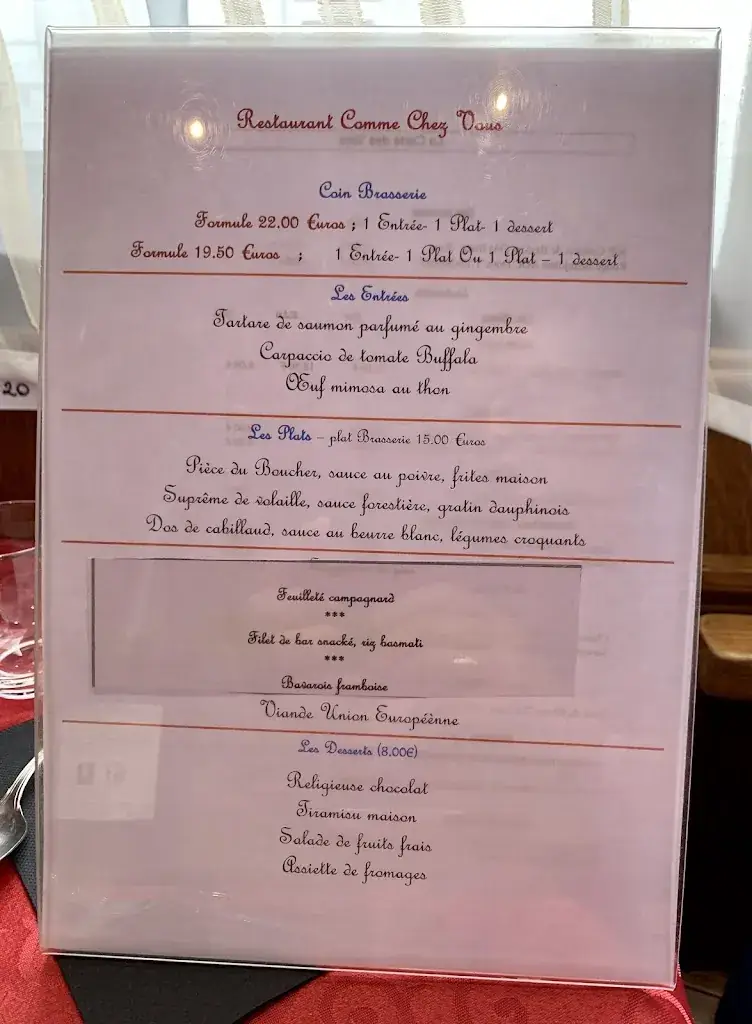 Restaurant Comme Chez Vous
Coin Brasserie
Formule 22.00 Euros ; 1 Entrée- 1 Plat- 1 dessert
Formule 19.50 Euros ; 1 Entrée- 1 Plat Ou 1 Plat – 1 dessert
Les Entrées
Tartare de saumon parfumé au gingembre
Carpaccio de tomate Buffala
Œuf mimosa au thon
20
Les Plats – plat Brasserie 15.00 Euros
Pièce du Boucher, sauce au poivre, frites maison
Suprême de volaille, sauce forestière, gratin dauphinois
Dos de cabillaud, sauce au beurre blanc, légumes croquants
Feuilleté campagnard
***
Filet de bar snacké, riz basmati
***
Bavarois framboise
Viande Union Européènne
Les Desserts (8.00€)
Religieuse chocolat
Tiramisu maison
Salade de fruits frais
Assiette de fromages